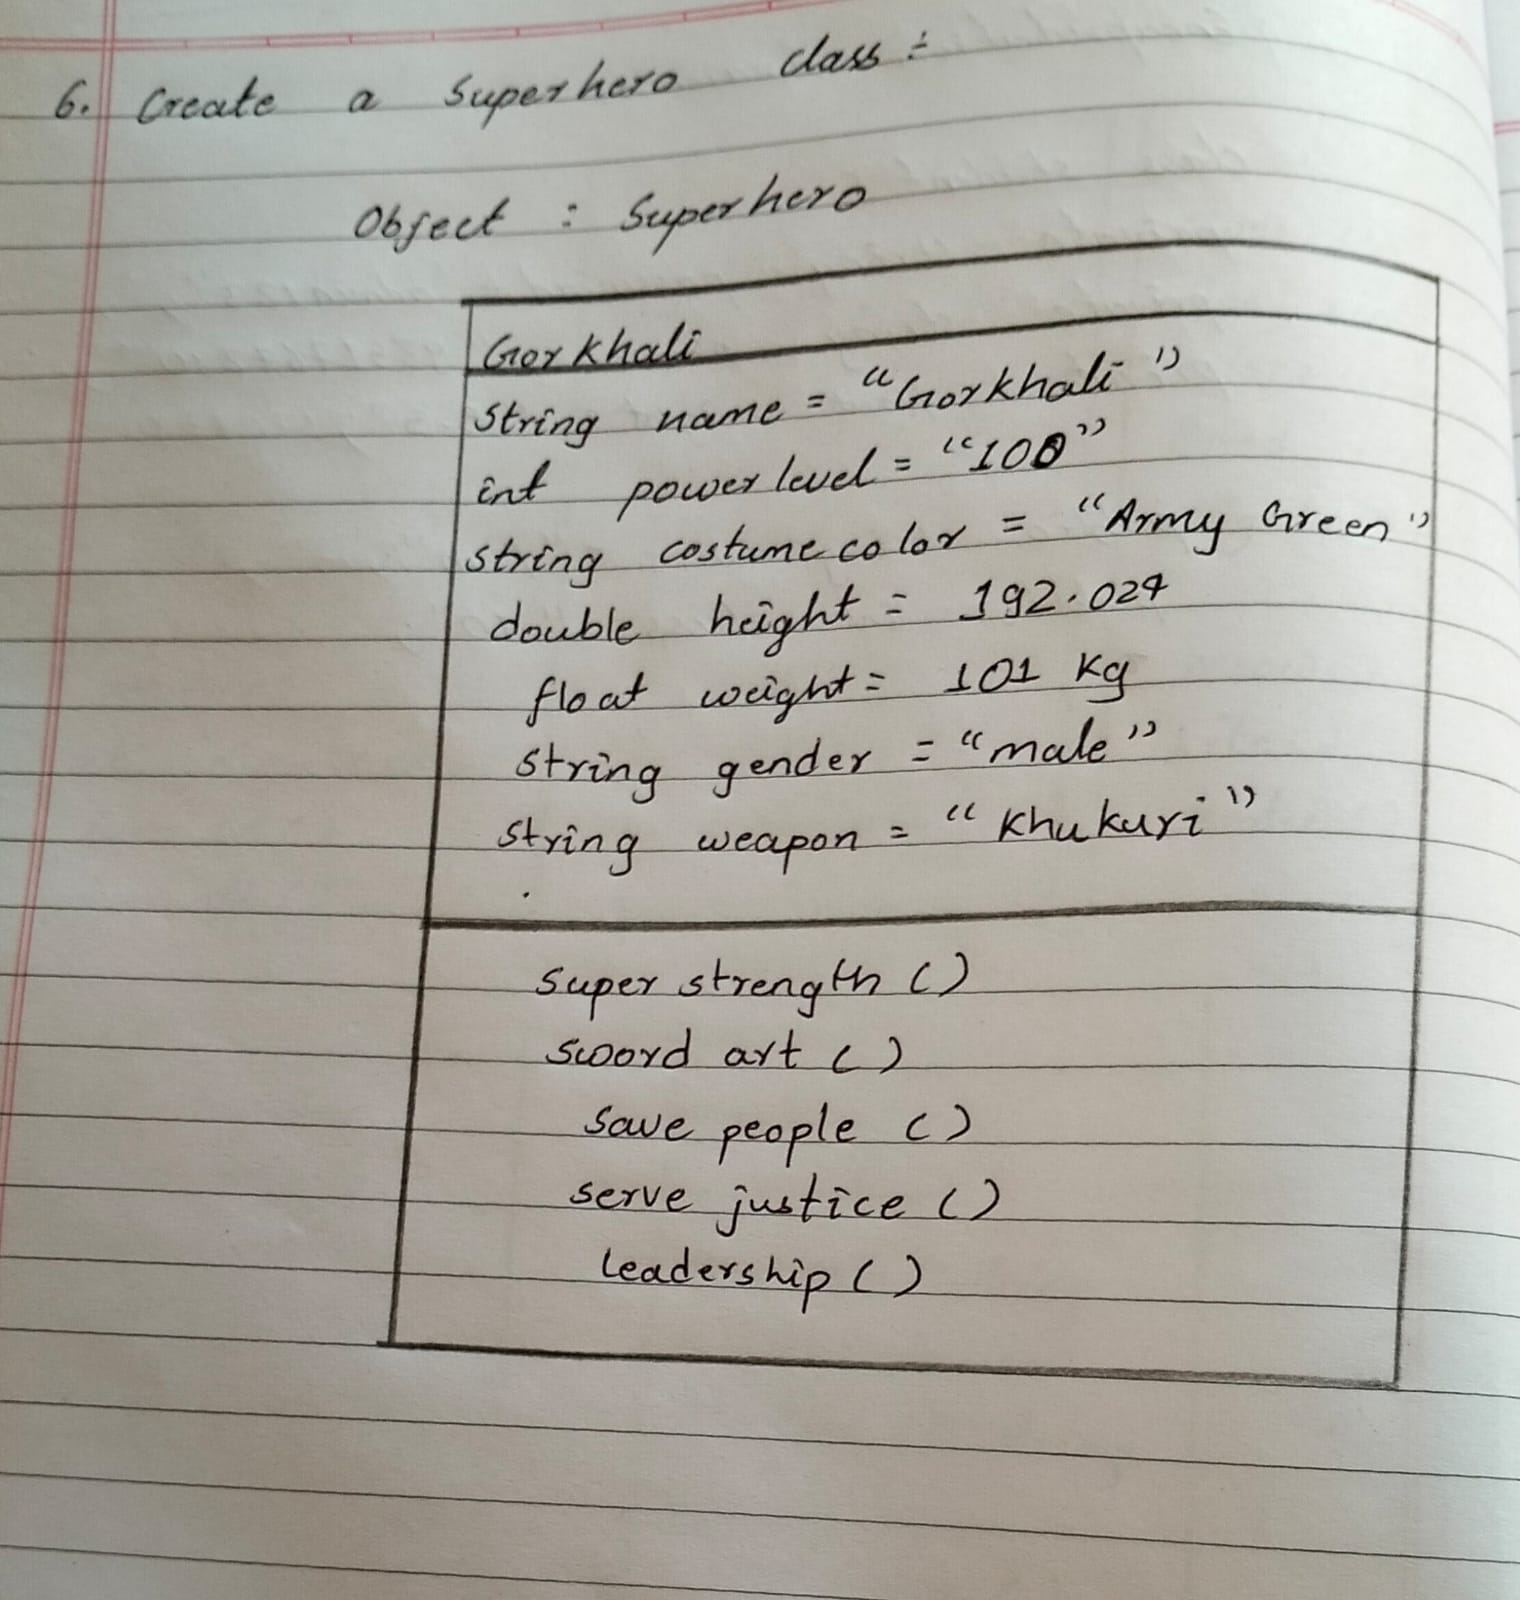 6. Create a Superhero class :-
Object : Superhero
Gorkhali
String name = "Gorkhali"
int power level = "100"
string costume color = "Army Green"
double height = 192.024
float weight = 101 kg
string gender = "male"
string weapon = "Khukuri"
super strength ()
sword art ()
save people ()
serve justice ()
leadership ()